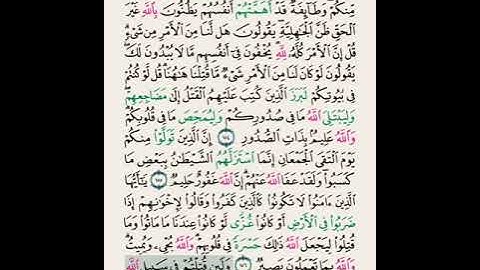 مِّنكُمْ وَطَآئِفَةٌ قَدْ أَهَمَّتْهُمْ أَنفُسُهُمْ يَظُنُّونَ بِٱللَّهِ غَيْرَ
ٱلْحَقِّ ظَنَّ ٱلْجَٰهِلِيَّةِ يَقُولُونَ هَل لَّنَا مِنَ ٱلْأَمْرِ مِن شَىْءٍ
قُلْ إِنَّ ٱلْأَمْرَ كُلَّهُۥ لِلَّهِ يُخْفُونَ فِىٓ أَنفُسِهِم مَّا لَا يُبْدُونَ لَكَ
يَقُولُونَ لَوْ كَانَ لَنَا مِنَ ٱلْأَمْرِ شَىْءٌ مَّا قُتِلْنَا هَٰهُنَا قُل لَّوْ كُنتُمْ
فِى بُيُوتِكُمْ لَبَرَزَ ٱلَّذِينَ كُتِبَ عَلَيْهِمُ ٱلْقَتْلُ إِلَىٰ مَضَاجِعِهِمْ
وَلِيَبْتَلِىَ ٱللَّهُ مَا فِى صُدُورِكُمْ وَلِيُمَحِّصَ مَا فِى قُلُوبِكُمْ
وَٱللَّهُ عَلِيمٌۢ بِذَاتِ ٱلصُّدُورِ ١٥٤ إِنَّ ٱلَّذِينَ تَوَلَّوْا۟ مِنكُمْ
يَوْمَ ٱلْتَقَى ٱلْجَمْعَانِ إِنَّمَا ٱسْتَزَلَّهُمُ ٱلشَّيْطَٰنُ بِبَعْضِ مَا
كَسَبُوا۟ وَلَقَدْ عَفَا ٱللَّهُ عَنْهُمْ إِنَّ ٱللَّهَ غَفُورٌ حَلِيمٌ ١٥٥ يَٰٓأَيُّهَا
ٱلَّذِينَ ءَامَنُوا۟ لَا تَكُونُوا۟ كَٱلَّذِينَ كَفَرُوا۟ وَقَالُوا۟ لِإِخْوَٰنِهِمْ إِذَا
ضَرَبُوا۟ فِى ٱلْأَرْضِ أَوْ كَانُوا۟ غُزًّى لَّوْ كَانُوا۟ عِندَنَا مَا مَاتُوا۟ وَمَا
قُتِلُوا۟ لِيَجْعَلَ ٱللَّهُ ذَٰلِكَ حَسْرَةً فِى قُلُوبِهِمْ وَٱللَّهُ يُحْىِۦ وَيُمِيتُ
وَٱللَّهُ بِمَا تَعْمَلُونَ بَصِيرٌ ١٥٦ وَلَئِن قُتِلْتُمْ فِى سَبِيلِ ٱللَّهِ